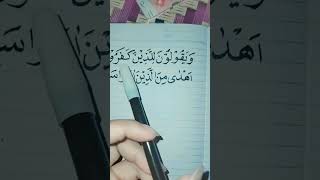 وَيَقُوْلُوْنَ لِلَّذِيْنَ كَفَرُوْ
اَهْدٰى مِنَ الَّذِيْنَ